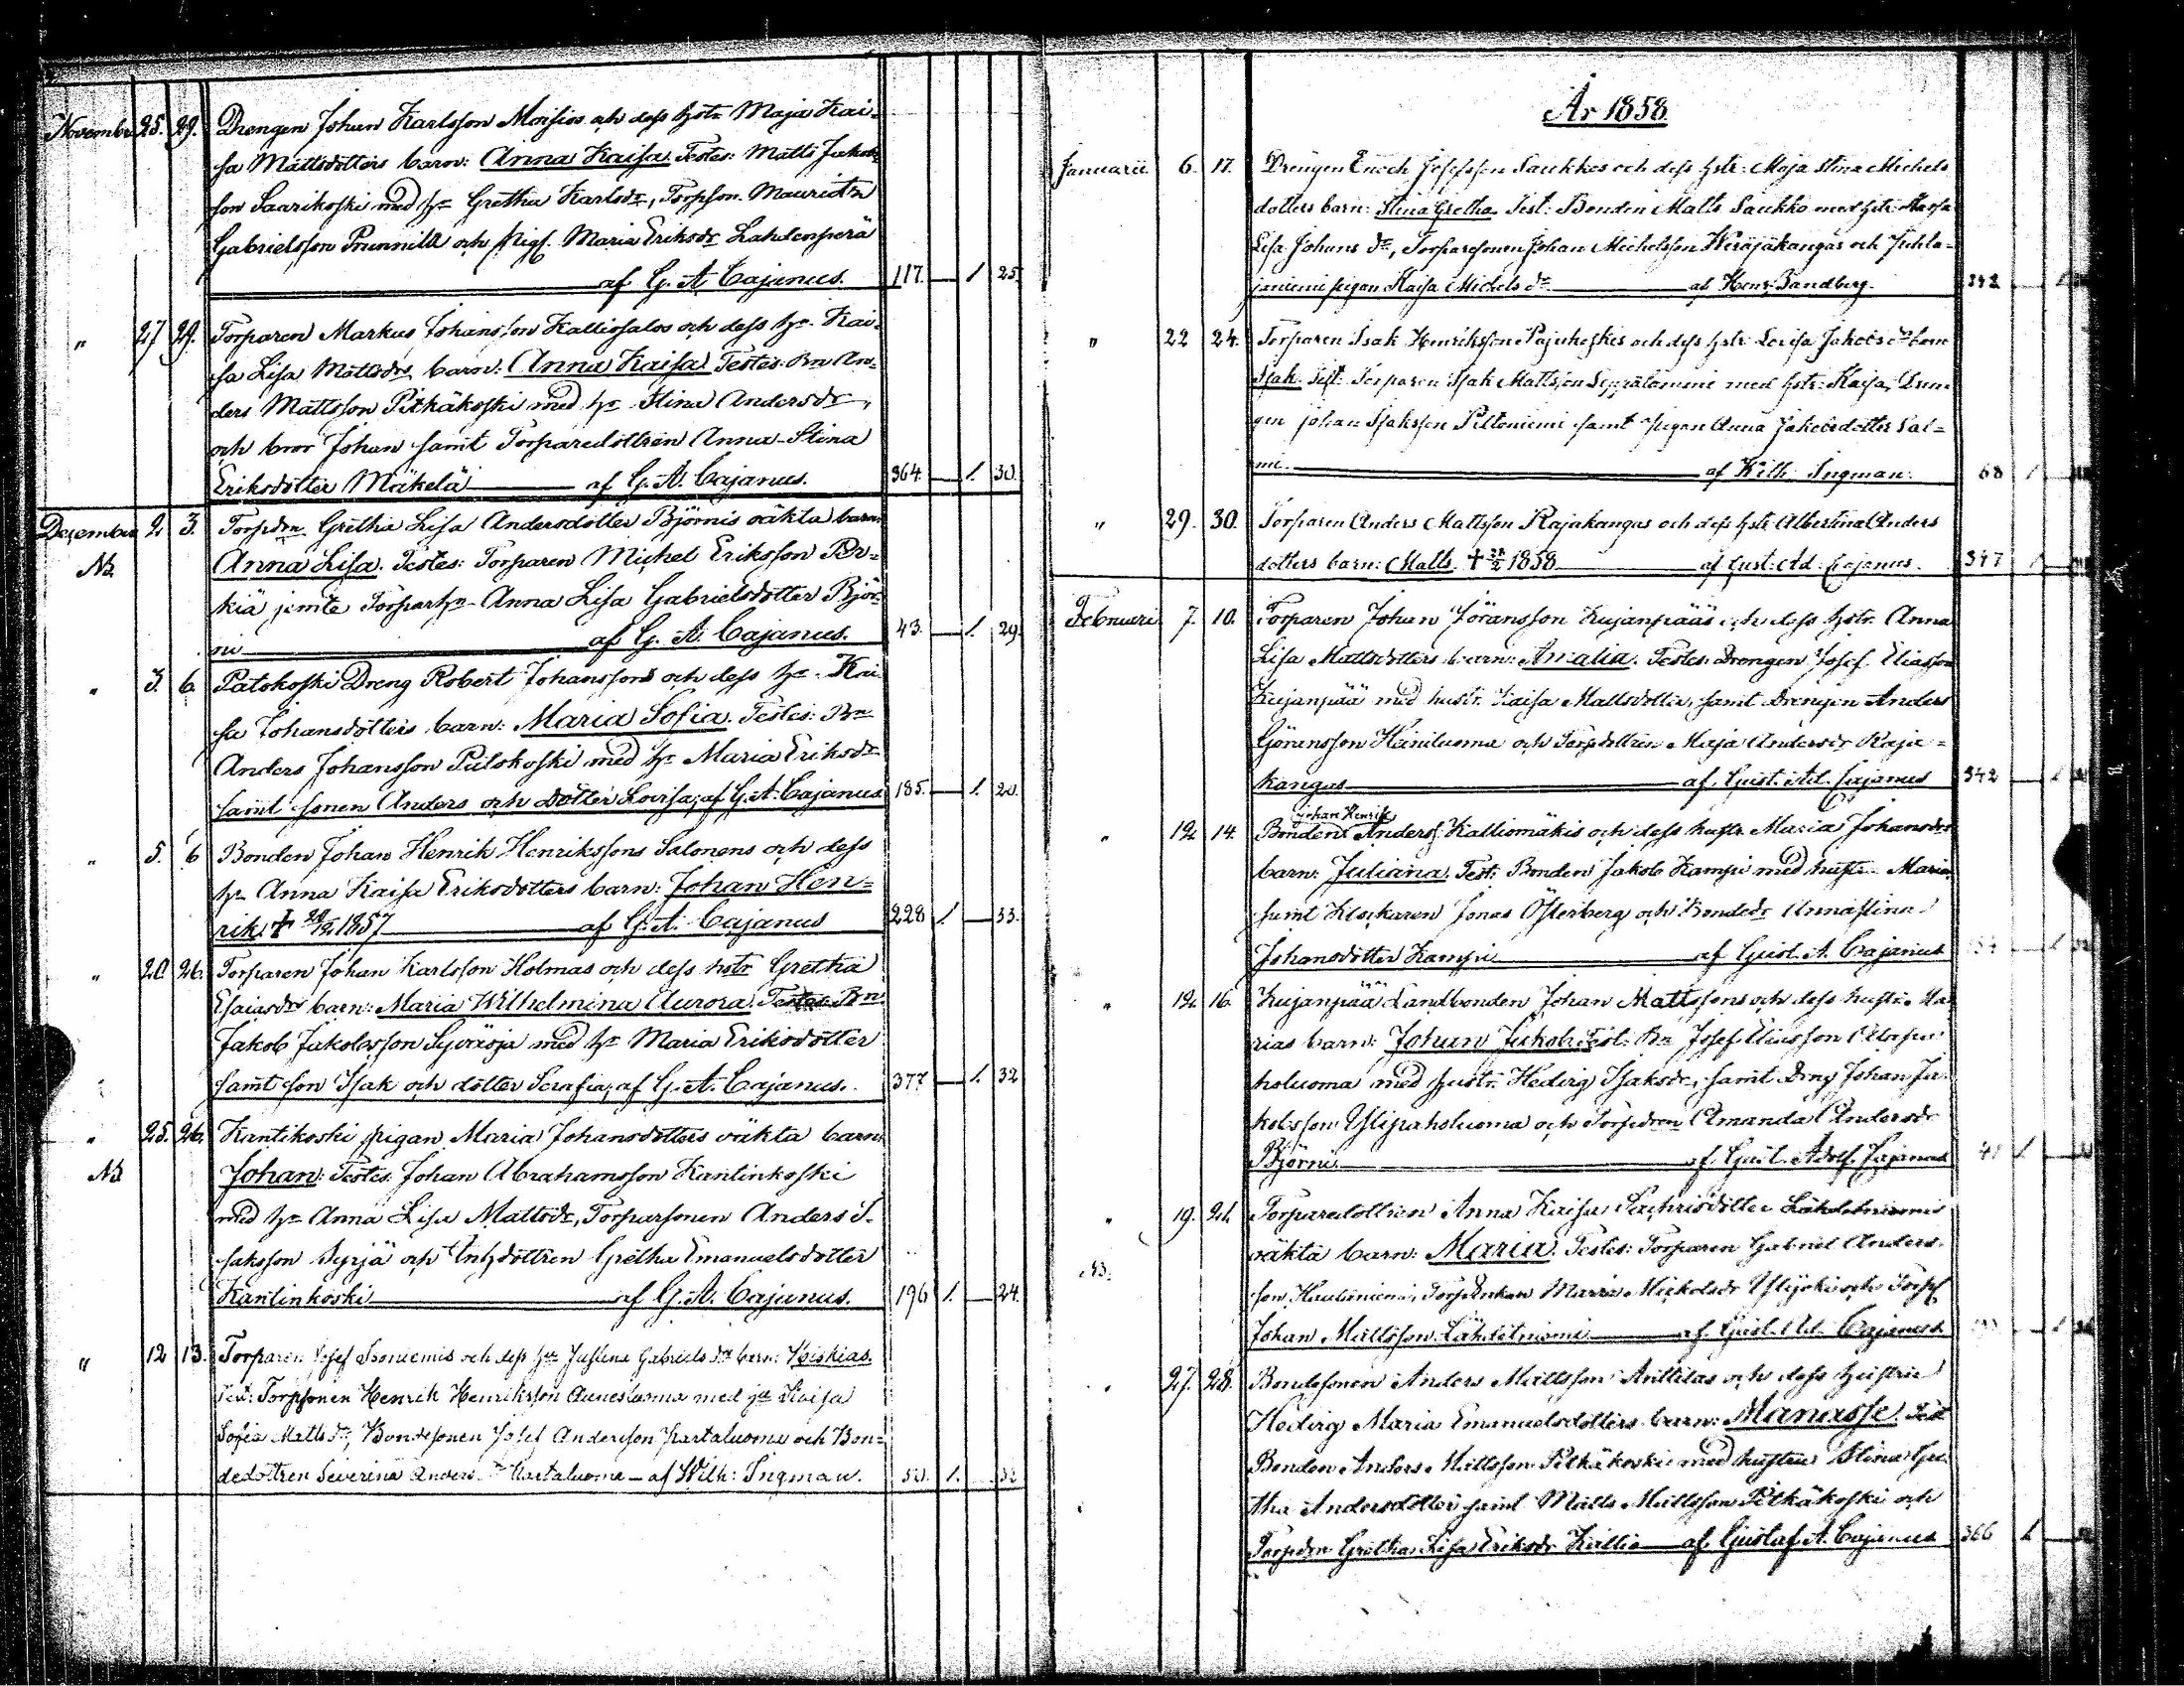 November 25. 29. Drengen Johan Karlsson Moisios och dess hstr Maja Kai-
sa Mattsdotters barn: Anna Kaisa. Testes: Matts Jakobs-
son Saarikoski med hu Gretha Karlsdr, Torpson. Mauritz
Gabrielsson Prunnila och pig. Maria Eriksdr Lahdenperä
af G. A. Cajanus. 117. — 1 25.
" 27 29. Torparen Markus Johansson Kalliosalos och dess hu. Kai-
sa Lisa Mattsdrs barn: Anna Kaisa Testes. Bn An-
ders Mattsson Pitkäkoski med hu Stina Andersdr,
och bror Johan samt Torparedottren Anna-Stina
Eriksdotter Mäkelä — af G. A. Cajanus. 364. — 1. 30.
Desember 2. 3. Torpdrn Gretha Lisa Andersdotter Björnis oäkta barn:
Nb. Anna Lisa. Testes: Torparen Michel Eriksson Per-
kiä jemte Torparhu Anna Lisa Gabrielsdotter Björ-
ni — af G. A. Cajanus. 43. — 1. 29.
" 3. 6. Patokoski Dreng Robert Johanssons och dess hu. Kai-
sa Johansdotters barn: Maria Sofia. Testes: Bn
Anders Johansson Patokoski med hu Maria Eriksdr
samt sonen Anders och dotter Lovisa; af G. A. Cajanus 185. — 1. 20.
" 5. 6 Bonden Johan Henrik Henrikssons Salonens och dess
hu Anna Kaisa Eriksdotters barn: Johan Hen-
rik. † 29/12 1857 — af G. A. Cajanus 228 1 — 33.
" 20. 26. Torparen Johan Karlsson Holmas och dess hstr Gretha
Esaiasdrs barn: Maria Wilhelmina Aurora. Testes Bn
Jakob Jakobsson Syväoja med hu Maria Eriksdotter
samt son Isak och dotter Serafia; af G. A. Cajanus. 377 — 1. 32
" 25. 26. Kantikoski pigan Maria Johansdotters oäkta barn:
Nb Johan: Testes: Johan Abrahamsson Kantinkoski
med hu Anna Lisa Mattsdr, Torparsonen Anders I-
saksson Syrjä och Inhdottren Gretha Emanuelsdotter
Kantinkoski — af G. A. Cajanus. 196 1. — 24.
" 12 13. Torparen Josef Isoniemis och dess hu Justina Gabriels dr barn: Hiskias.
Test: Torpsonen Henrik Henriksson Annesluoma med hu Kaisa
Sofia Matts dr, Bondesonen Josef Andersson Kartaluoma och Bon-
dedottren Severina Anders dr Kartaluoma — af Wilh: Ingman. 1. 32
År 1858.
Januarii 6. 17. Drengen Enoch Josefsson Saukkos och dess hstr: Maja Stina Michels
dotters barn: Stina Gretha. Test: Bonden Matts Saukko med hstr:
Lisa Johans dr, Torparesonen Johan Michelsson Weräjäkangas och Juhla-
janiemi pigan Kaisa Michels dr — af Henr. Sandberg. 342 —
" 22 24. Torparen Isak Henriksson Pajukoskis och dess hstr: Lovisa Jakobs drs barn
Isak. Test: Torparen Isak Mattsson Seppälaniemi med hstr: Kaisa, Dren-
gen Johan Isaksson Piltoniemi samt pigan Anna Jakobsdotter Sal-
mi. — af Wilh: Ingman. 68 1
" 29. 30. Torparen Anders Mattsson Rajakangas och dess hstr Albertina Anders
dotters barn: Matts. † 1858 — af Gust: Ad: Cajanus. 347 1
Februari 7. 10. Torparen Johan Jöransson Kujanpääs och dess hstr. Anna
Lisa Mattsdotters barn: Amalia. Testes: Drengen Josef Eliasson
Kujanpää med hustr. Kaisa Mattsdotter, samt Drengen Anders
Göransson Heiniluoma och Torpdottren Maja Andersdr Raja-
kangas — af Gust. Ad. Cajanus 342 —
Johan Henriks
" 12. 14. Bonden Anders Kalliomäkis och dess hustr. Maria Johansdrs
barn: Juliana. Test: Bonden Jakob Kampi med hustr. Maria
samt Klockaren Jonas Österberg och Bondedr Annastina
Johansdotter Kampi — af Gust. A. Cajanus
" 12. 16. Kujanpää Landbonden Johan Mattssons och dess hustr. Ma-
rias barn: Johan Jakob: Test: Bn Josef Eliasson
holuoma med hustr. Hedvig Isaksdr, samt Dreng Johan Ja-
kobsson Ylipaholuoma och Torpdren Amanda Andersdr
Björni — af Gust. Adolf. Cajanus 41 1 —
" 19. 21. Torparedottren Anna Kaisa Sachrisdotter Lähdetniemis
NB. oäkta barn: Maria. Testes: Torparen Gabriel Anders-
son Hautoniemi, Torpenkan Maria Mickelsdr Ylijoki och Torps
Johan Mattsson Lähdetniemi — af Gust. Ad. Cajanus
" 27. 28. Bondesonen Anders Mattsson Anttilas och dess hustru
Hedvig Maria Emanuelsdotters barn: Manasse. Test
Bonden Anders Mattsson Pitkäkoski med hustru Stina Gre-
tha Andersdotter samt Matts Mattsson Pitkäkoski och
Torpdrn Gretha Lisa Eriksdr Kallio — af Gustaf A. Cajanus 366 1 —